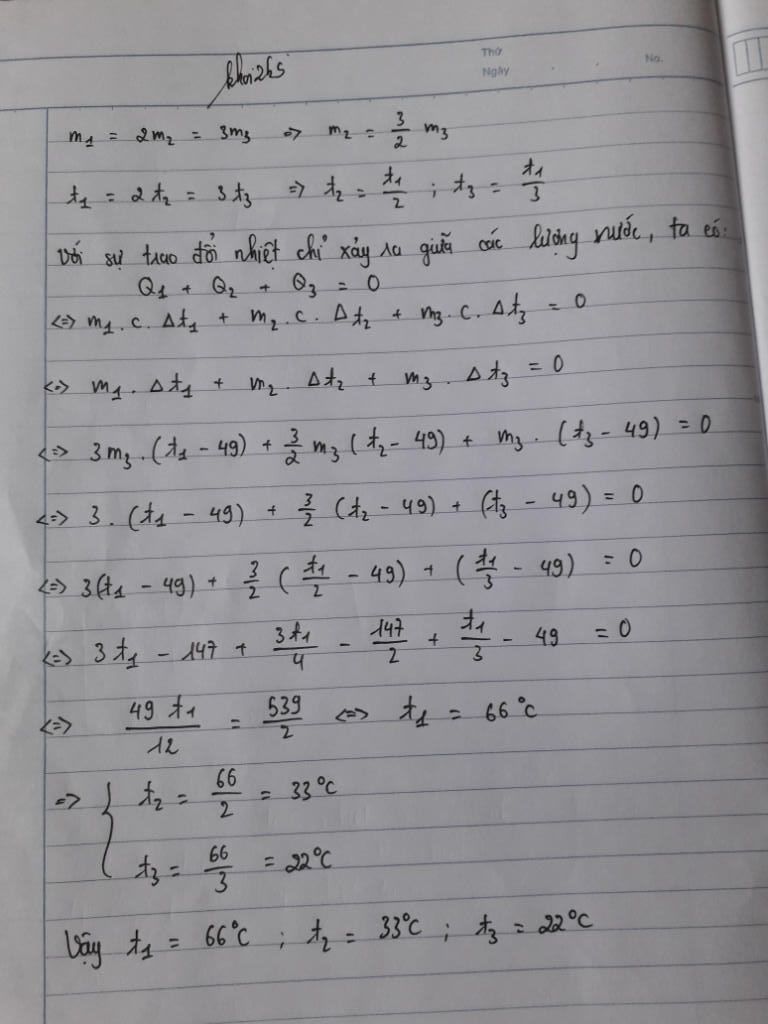 khoi2k5
Thứ
Ngày
No.
m₁ = 2m₂ = 3m₃ => m₂ = 3/2 m₃
t₁ = 2t₂ = 3t₃ => t₂ = t₁/2 ; t₃ = t₁/3
Với sự trao đổi nhiệt chỉ xảy ra giữa các lượng nước, ta có:
Q₁ + Q₂ + Q₃ = 0
<=> m₁.c.Δt₁ + m₂.c.Δt₂ + m₃.c.Δt₃ = 0
<=> m₁.Δt₁ + m₂.Δt₂ + m₃.Δt₃ = 0
<=> 3m₃.(t₁ - 49) + 3/2 m₃(t₂ - 49) + m₃.(t₃ - 49) = 0
<=> 3.(t₁ - 49) + 3/2 (t₂ - 49) + (t₃ - 49) = 0
<=> 3(t₁ - 49) + 3/2 (t₁/2 - 49) + (t₁/3 - 49) = 0
<=> 3t₁ - 147 + 3t₁/4 - 147/2 + t₁/3 - 49 = 0
<=> 49t₁/12 = 539/2 <=> t₁ = 66°C
=> { t₂ = 66/2 = 33°C
t₃ = 66/3 = 22°C
Vậy t₁ = 66°C ; t₂ = 33°C ; t₃ = 22°C